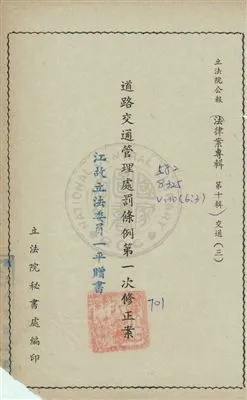 立法院公報
法律案專輯
第十輯
交通(三)
道路交通管理處罰條例第一次修正案
江故立法委員一平贈書
587
8325
701
立法院秘書處編印